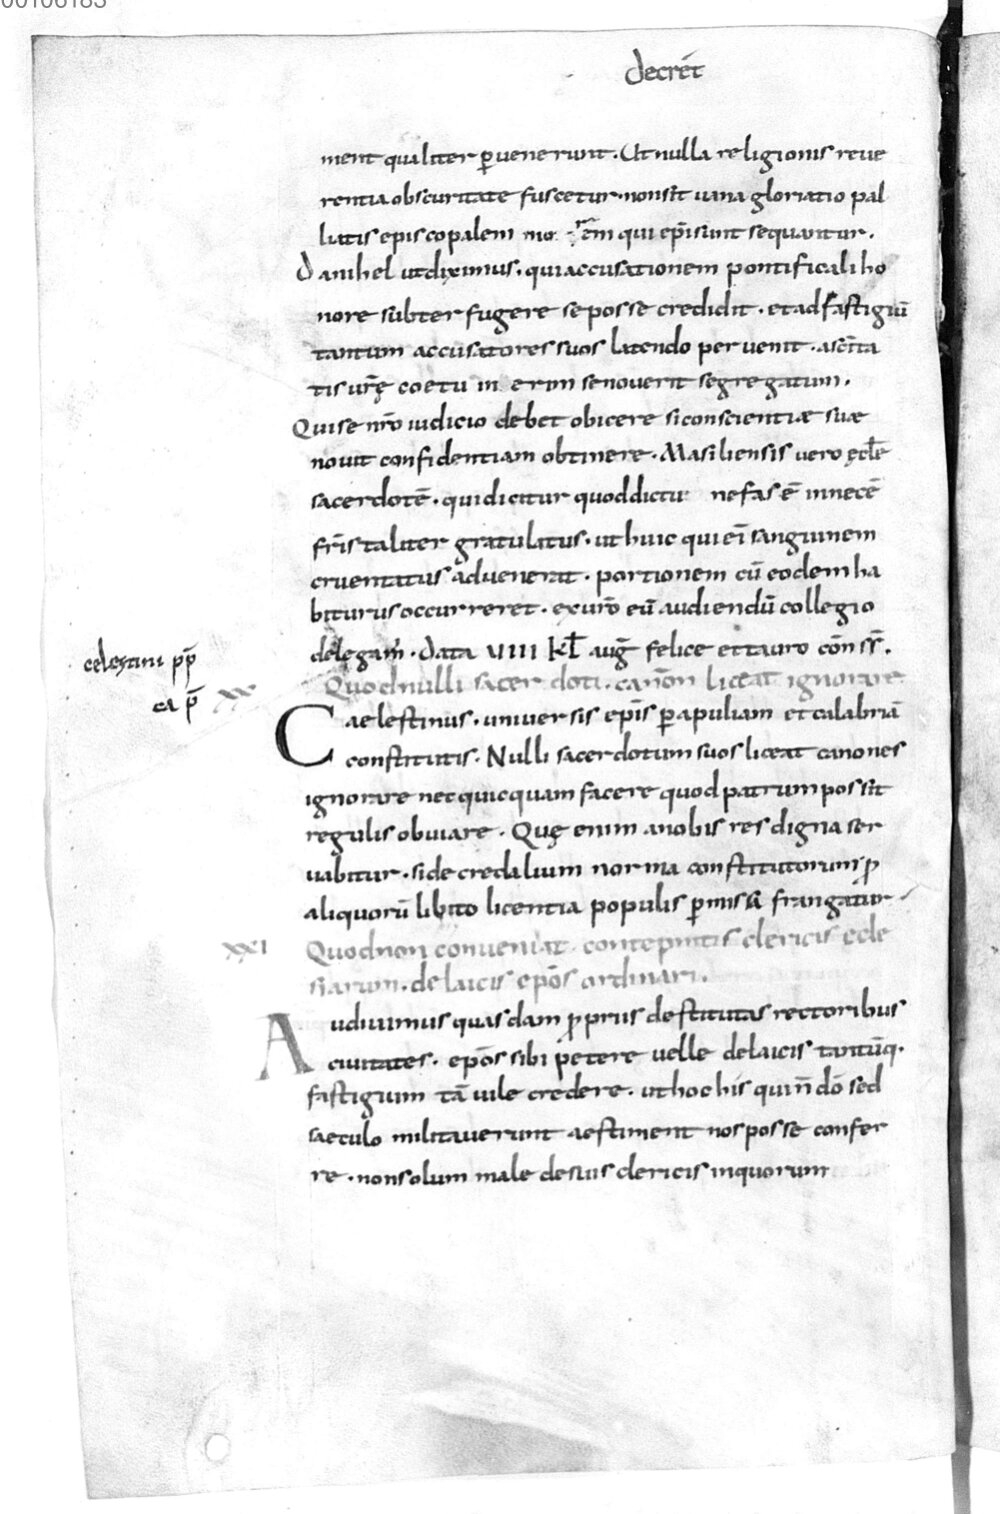 00106183
decret̄
ment qualiter p̄uenerunt. Ut nulla religionis reue
rentia obscuritate fuscetur. non sit uana gloriatio pal
liatis episcopalem qui ep̄i sunt sequantur.
Danihel ut diximus. qui accusationem pontificali ho
nore subterfugere se posse credidit. et ad fastigiū
tantum accusatores suos latendo peruenit. a sc̄ita
tis ur̄ę coetu se nouerit segregatum.
Qui se nr̄o iudicio debet obicere si conscientiæ suæ
nouit confidentiam obtinere. Masiliensis uero ęcl̄e
sacerdotē. qui dicitur quod dictu nefas ē in necē
fr̄is taliter gratulatus. ut huic qui ei sanguinem
cruentatus aduenerat. portionem cū eodem ha
biturus occurreret. ex ur̄o eū audiendū collegio
delęgam̄. Data VIIII kl̄ aug̅ felice et tauro cōn ss̄.
celestini pp̄
ca p̄
XX
Quod nulli sacerdoti. canōn liceat ignorare
Caelestinus. uniuersis ep̄is p̄ apuliam et calabriā
constitutis. Nulli sacerdotum suos liceat canones
ignorare nec quicquam facere quod patrum possit
regulis obuiare. Quę enim a nobis res digna ser
uabitur. si decredalium norma constitutorum p̄
aliquorū libito licentia populis p̄missa frangatur
XXI
Quod non conueniat contēptis clericis ecle
siarum. de laicis ep̄os ordinari.
Audiuimus quasdam p̄prus destitutas rectoribus
ciuitates. ep̄os sibi petere uelle de laicis tantūq.
fastigium tā uile credere. ut hoc his qui n̄ dō sed
saeculo militauerunt aestiment nos posse confer
re. non solum male de suis clericis in quorum